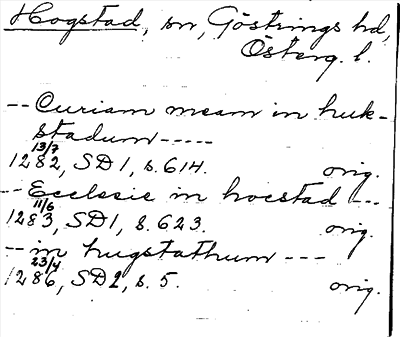 Hogstad, sn, Göstrings hd,
Österg. l.
-- Curiam meam in huk-
stadum -----
13/7
1282, SD 1, s. 614. orig.
-- Ecclesie in hocstad ---
11/6
1283, SD 1, s. 623. orig.
-- in hugstathum ---
23/4
1286, SD 2, s. 5. orig.